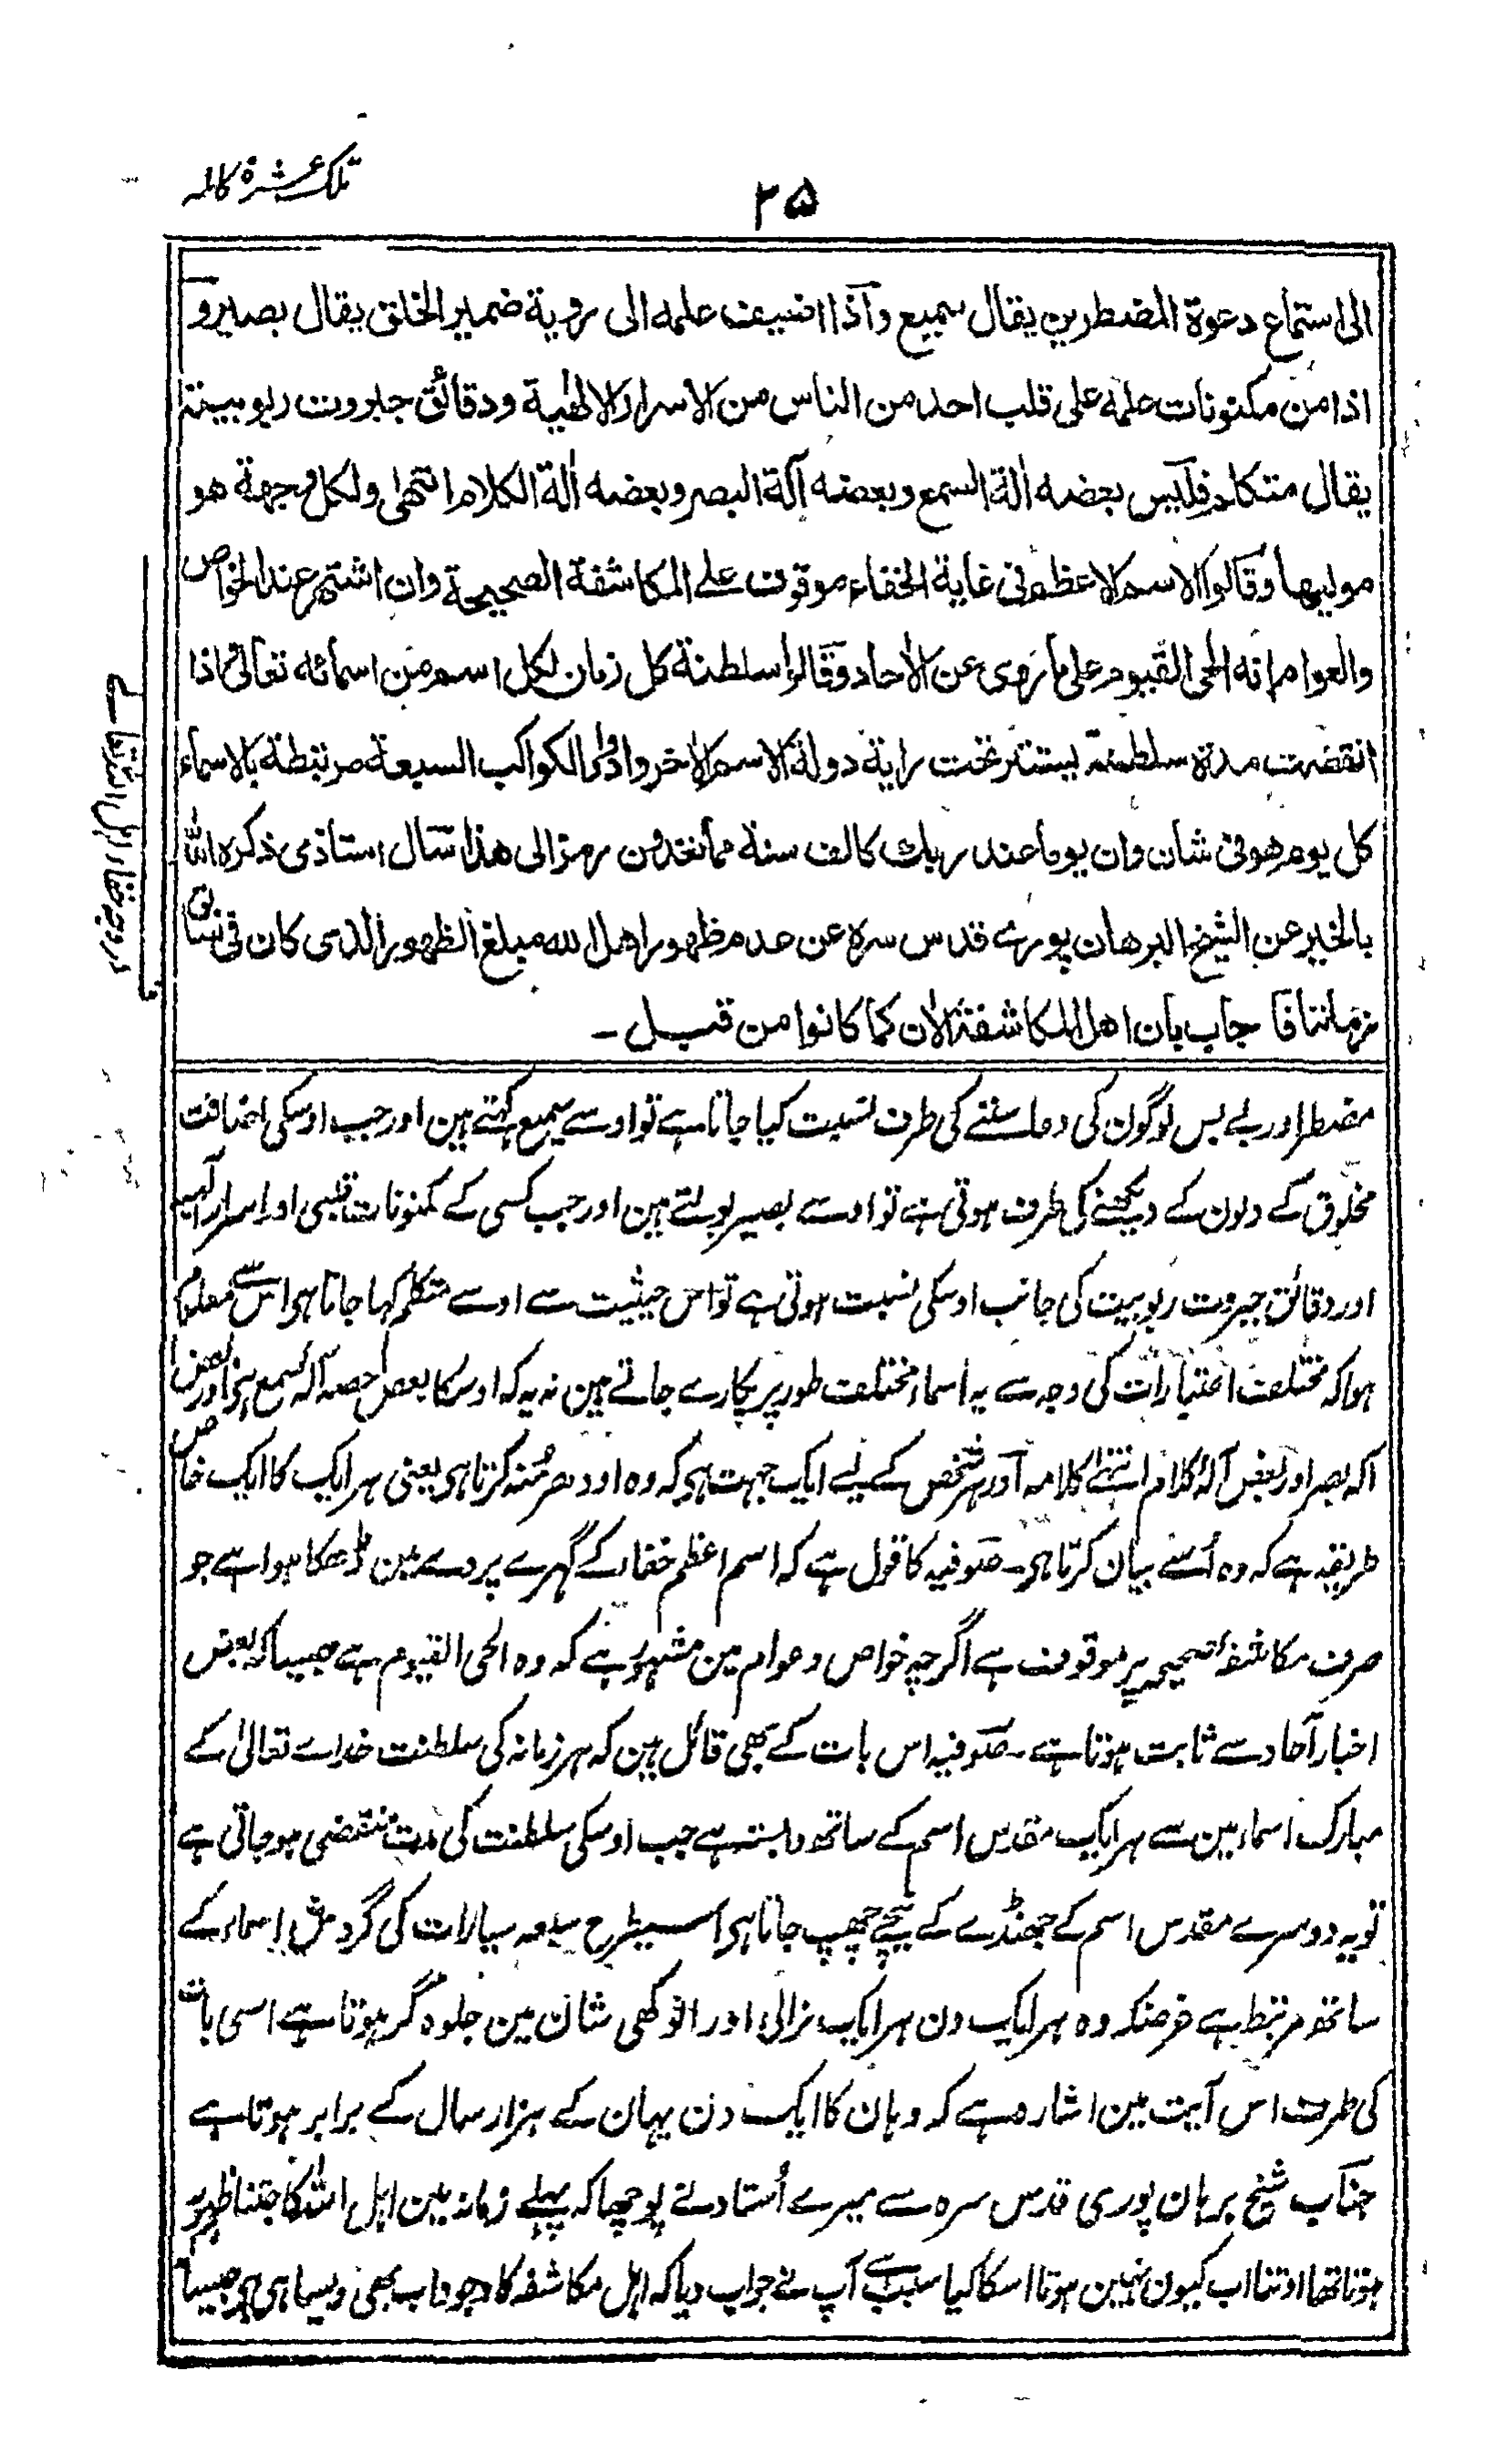 تلک عشرة کاملہ
۲۵
الی استماع دعوة المضطرین یقال سمیع وآذا اضیف علمه الی رویة ضمیر الخلق یقال بصیر و
اذا من مکنونات علمه علی قلب احد من الناس من الاسرار الالهیة ودقائق جبروت ربوبیته
یقال متکلم فلیس بعضه الة السمع وبعضه آلة البصر وبعضه الة الکلام انتهی ولکل وجهة هو
مولیها وقالوا الاسم الاعظم فی غایة الخفاء موقوف علے المکاشفة الصحیحة وان اشتهر عند الخواص
والعوام انه الحی القیوم علی ما روی عن الاحاد وقالوا سلطنة کل زمان لکل اسم من اسمائه تعالی فاذا
انقضت مدة سلطنته یستتر تحت رایة دولة الاسم الاخر وادوار الکواکب السبعة مرتبطة بالاسماء
کل یوم هو فی شان وان یوما عند ربک کالف سنة مما تعدون رمز الی هذا سأل استاذی ذکره الله
بالخیر عن الشیخ البرهان پورے قدس سره عن عدم ظهور اهل الله مبلغ الظهور الذی کان فی سابق
زماننا فا جاب بان اهل المکاشفة الان کما کانوا من قبل ـ
مضطر اور بے بس لوگون کی دعا سننے کی طرف نسبت کیا جاتا ہے تو اوسے سمیع کہتے ہین اور جب اوسکی اضافت
مخلوق کے دلون کے دیکھنے کی طرف ہوتی ہے تو اوسے بصیر بولتے ہین اور جب کسی کے مکنونات قلبی اور اسرار آلہیہ
اور دقائق جبروت ربوبیت کی جانب اوسکی نسبت ہوتی ہے تو اس حیثیت سے اوسے متکلم کہا جاتا ہی اس سے معلوم
ہوا کہ مختلف اعتبارات کی وجہ سے یہ اسماء مختلف طور پر پکارے جاتے ہین نہ یہ کہ اوسکا بعض حصہ آلہ سمع ہی اور بعض
آلہ بصر اور بعض آلہ کلام انتہے کلامہ اور ہر شخص کے لیے ایک جہت ہی کہ وہ اودھر مُنہ کرتا ہی یعنی ہر ایک کا ایک خاص
طریقہ ہے کہ وہ اُسے بیان کرتا ہی ـ صوفیہ کا قول ہے کہ اسم اعظم خفا کے گہرے پردے مین ڈھکا ہوا ہے جو
صرف مکاشفہ صحیحہ پر موقوف ہے اگرچہ خواص و عوام مین مشہور ہے کہ وہ الحی القیوم ہے جیسا کہ بعض
اخبار آحاد سے ثابت ہوتا ہے ـ صوفیہ اس بات کے بھی قائل ہین کہ ہر زمانہ کی سلطنت خداے تعالیٰ کے
مبارک اسماء مین سے ہر ایک مقدس اسم کے ساتھ وابستہ ہے جب اوسکی سلطنت کی مدت منقضی ہو جاتی ہے
تو یہ دوسرے مقدس اسم کے جھنڈے کے نیچے چھپ جاتا ہی اسیطرح سبعہ سیارات کی گردش اسماء کے
ساتھ مرتبط ہے غرضکہ وہ ہر ایک دن ہر ایک نرالی اور انوکھی شان مین جلوہ گر ہوتا ہے اسی بات
کی طرف اس آیت مین اشارہ ہے کہ وہان کا ایک دن یہان کے ہزار سال کے برابر ہوتا ہے
جناب شیخ برہان پوری قدس سرہ سے میرے اُستاد نے پوچھا کہ پہلے زمانہ مین اہل اللہ کا جتنا ظہور
ہوتا تھا اوتنا اب کیون نہین ہوتا اسکا کیا سبب ہے آپ نے جواب دیا کہ اہل مکاشفہ کا وجود اب بھی ویسا ہی ہی جیسا
در وجہ خفاء اہل اللہ تعالے